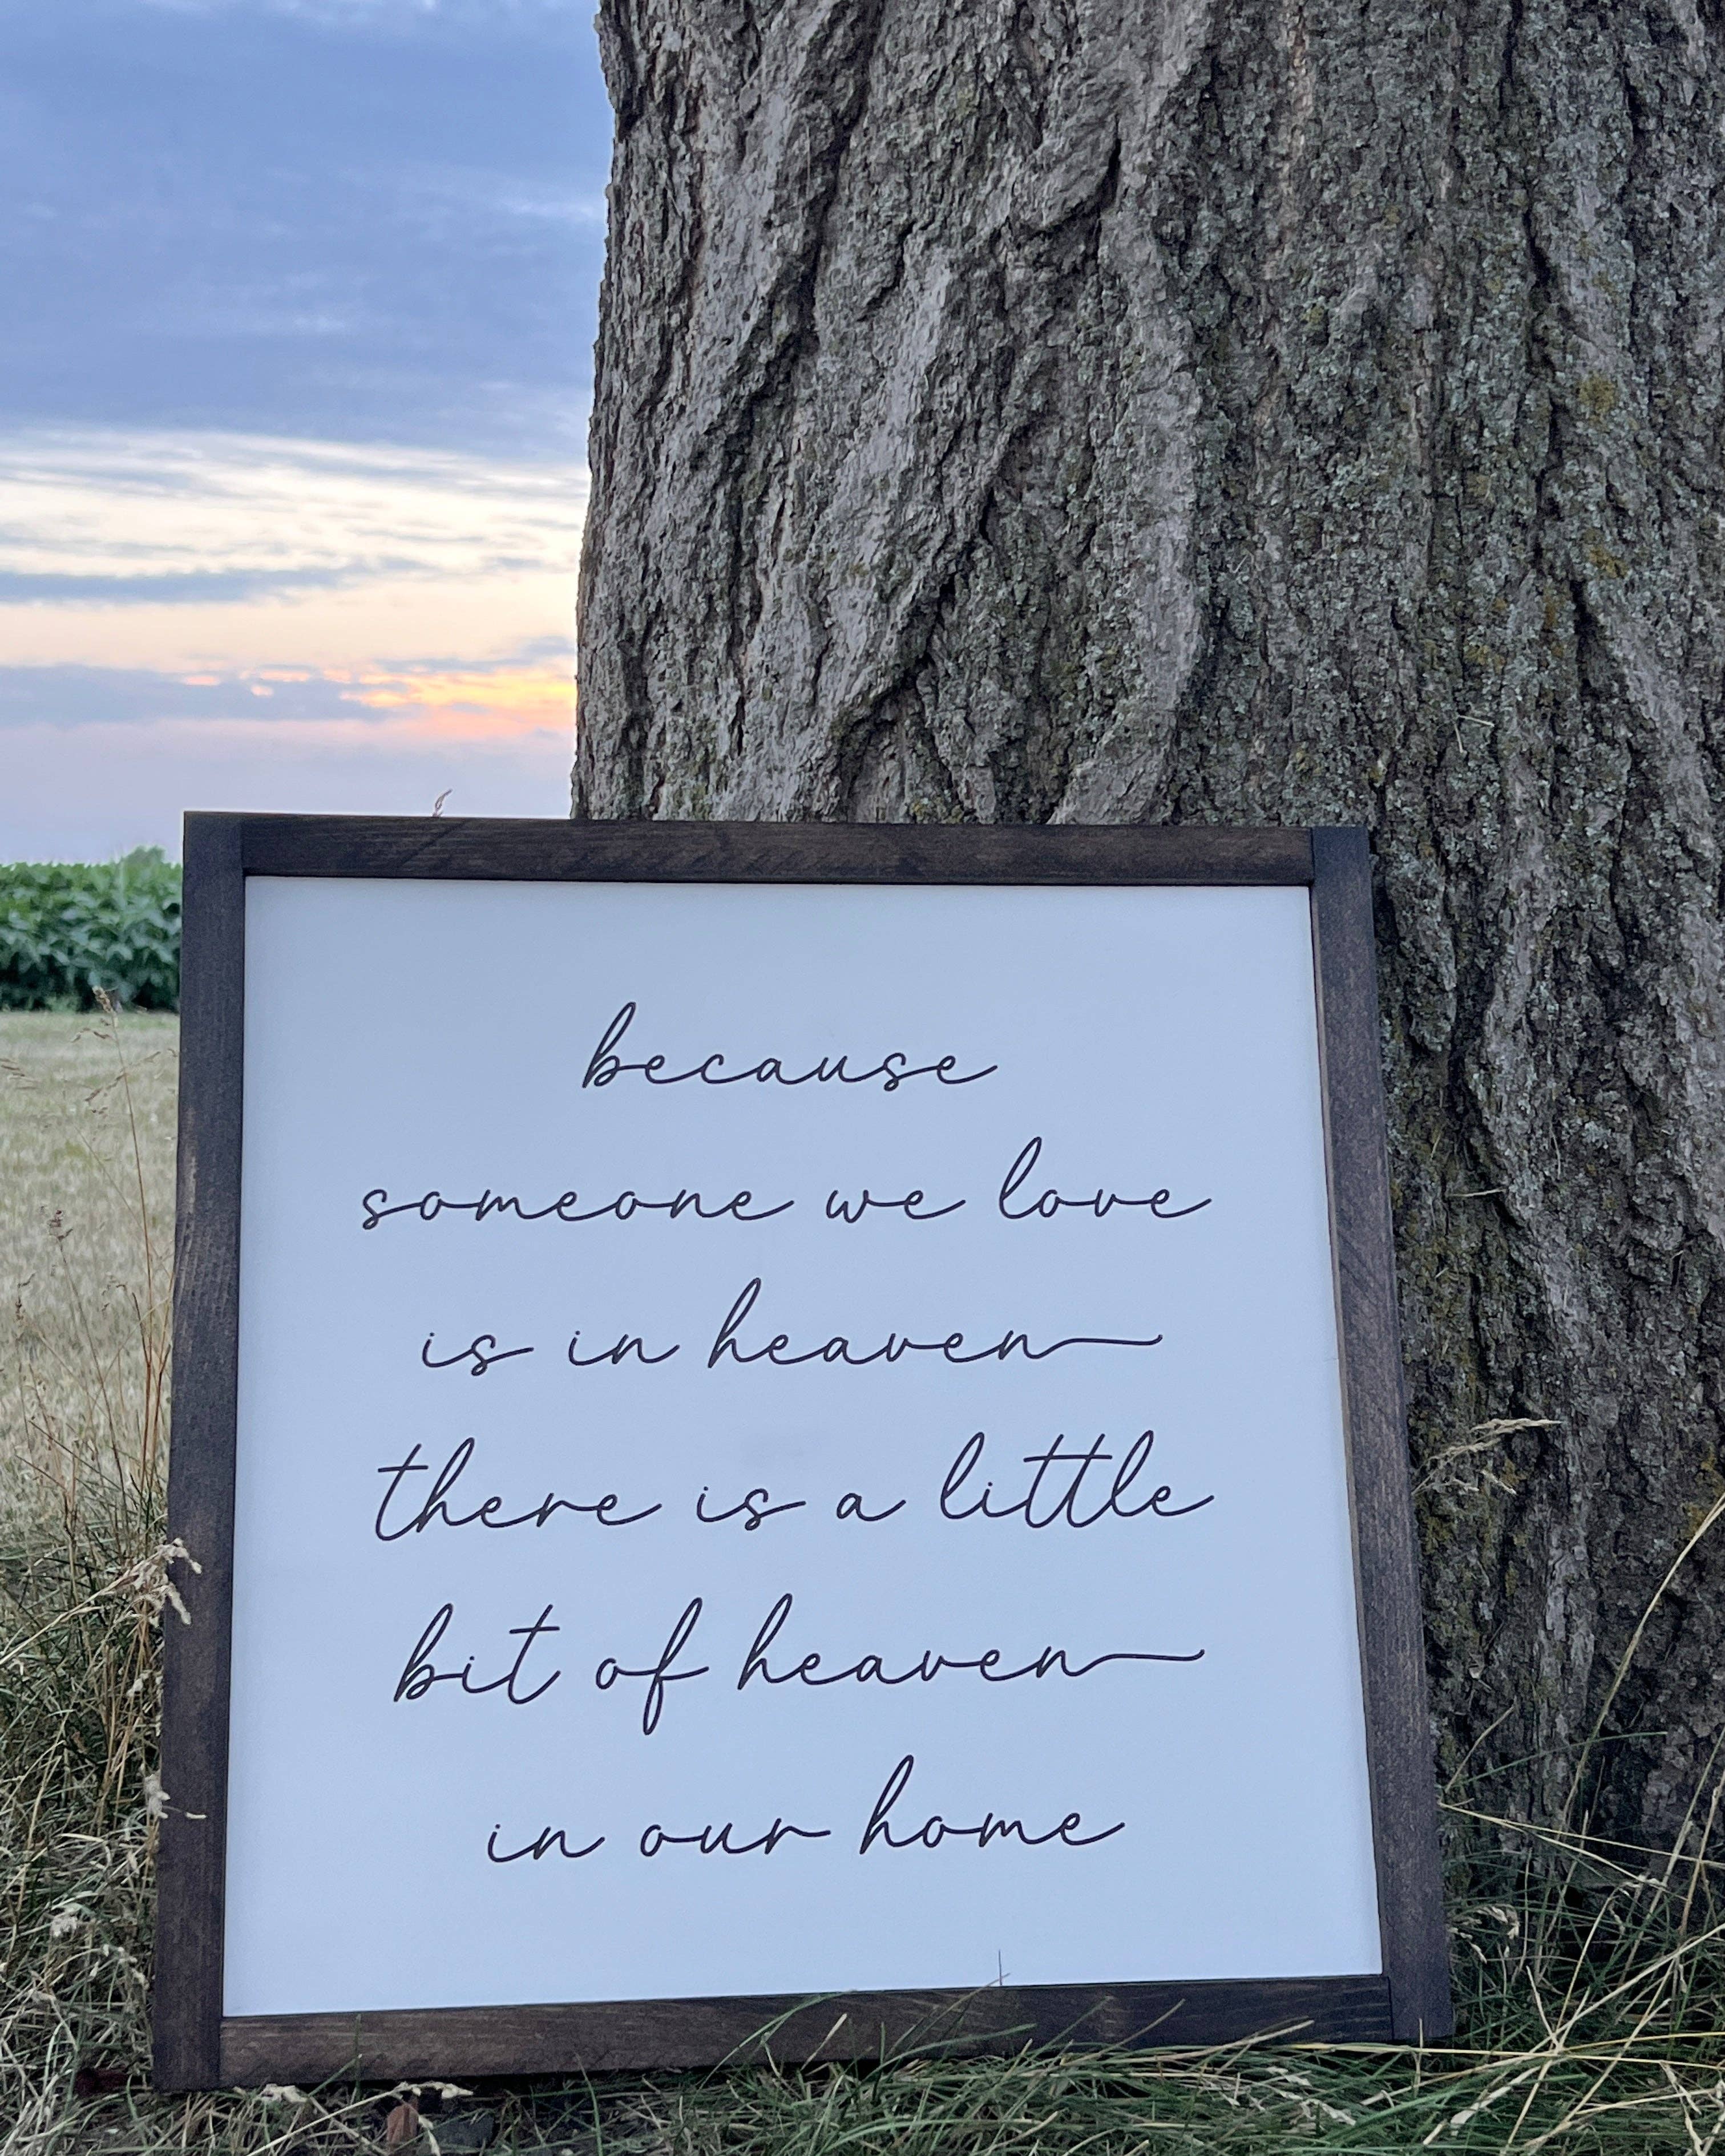 because
someone we love
is in heaven
there is a little
bit of heaven
in our home